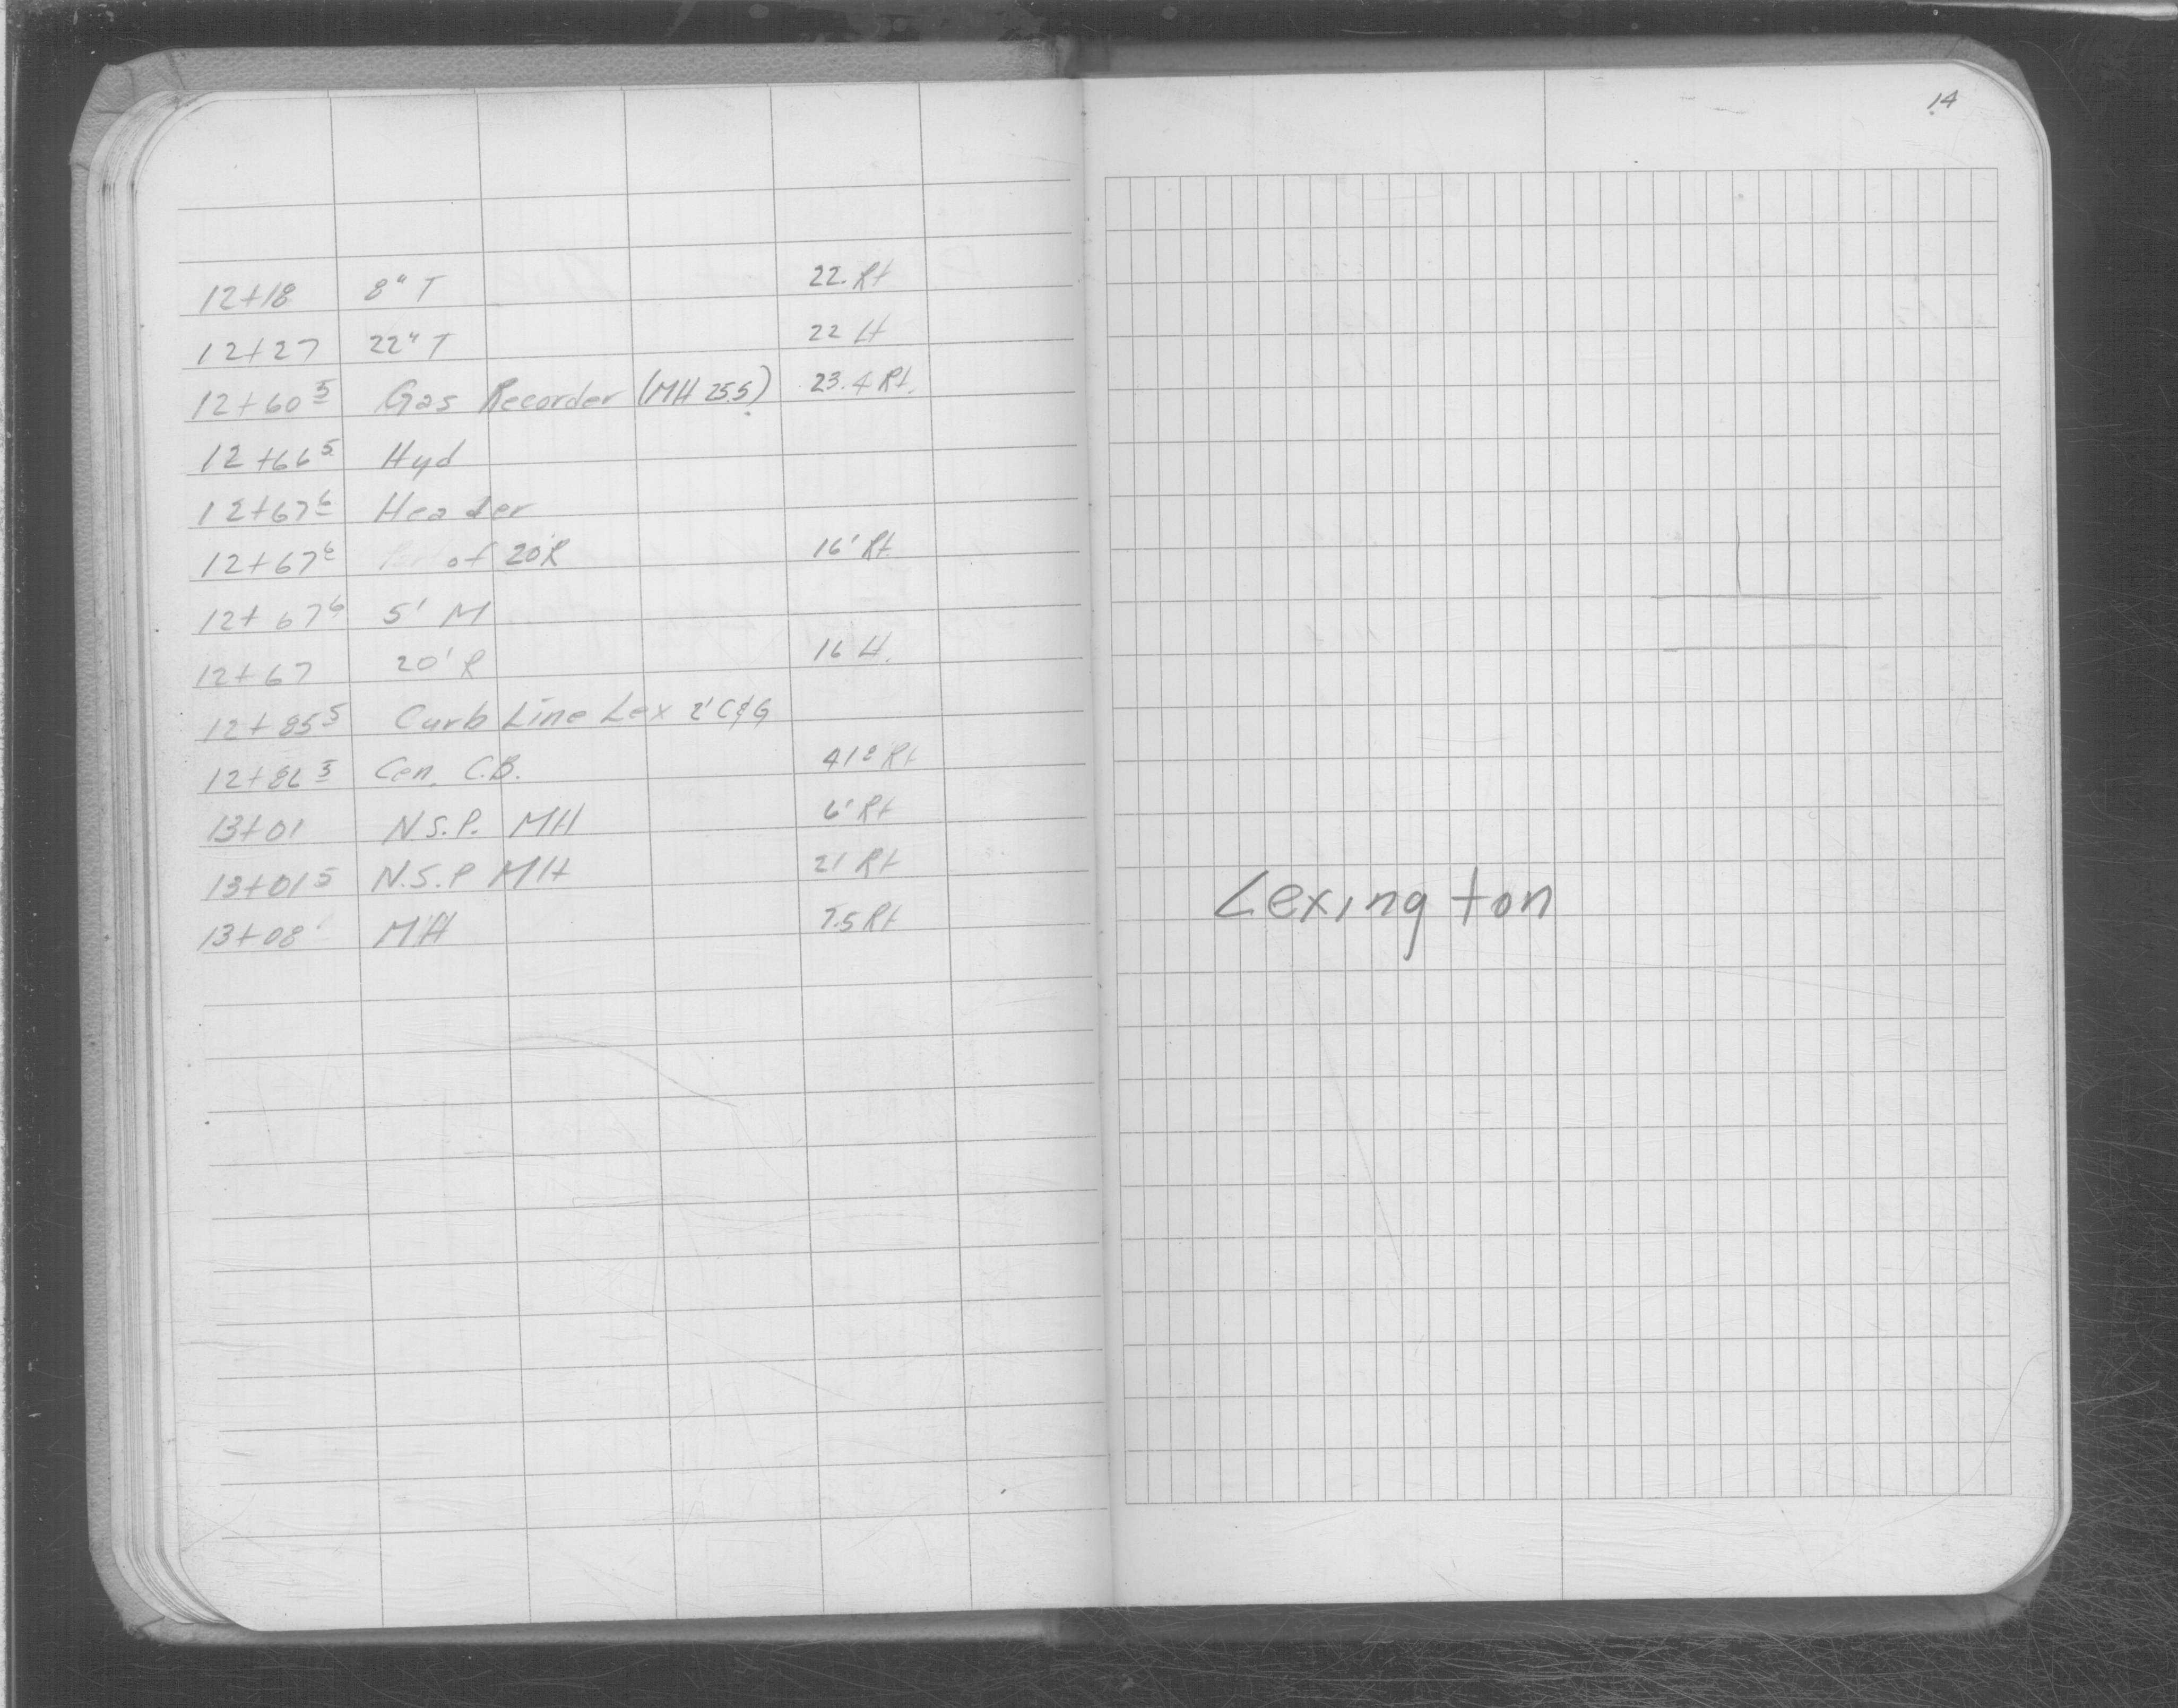 14
12+18 8" T 22. Rt
12+27 22" T 22 Lt
12+60 5 Gas Recorder (MH 25.5) 23.4 Rt.
12+66 5 Hyd
12+67 6 Header
12+67 6 of 20'R 16' Rt
12+67 6 5' M
12+67 20' R 16 Lt.
12+85 5 Curb Line Lex 2' C&G
12+86 5 Cen. C.B. Rt
13+01 N.S.P. MH 6' Rt
13+01 5 N.S.P MH 21 Rt
13+08 MH 7.5 Rt
Lexington